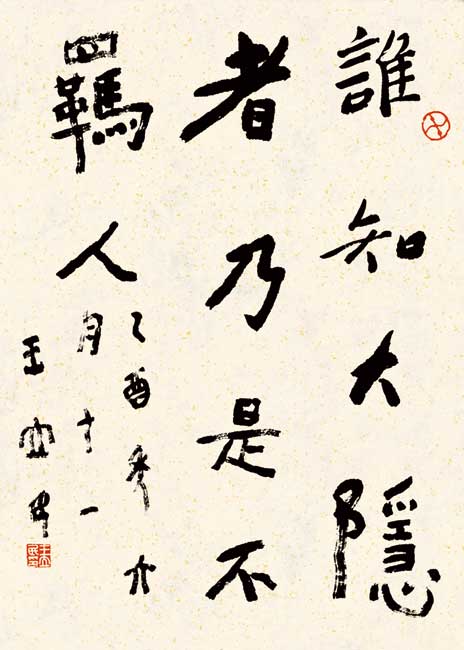 誰知大隱
者乃是不
羈人
乙酉秊六
月十一
王